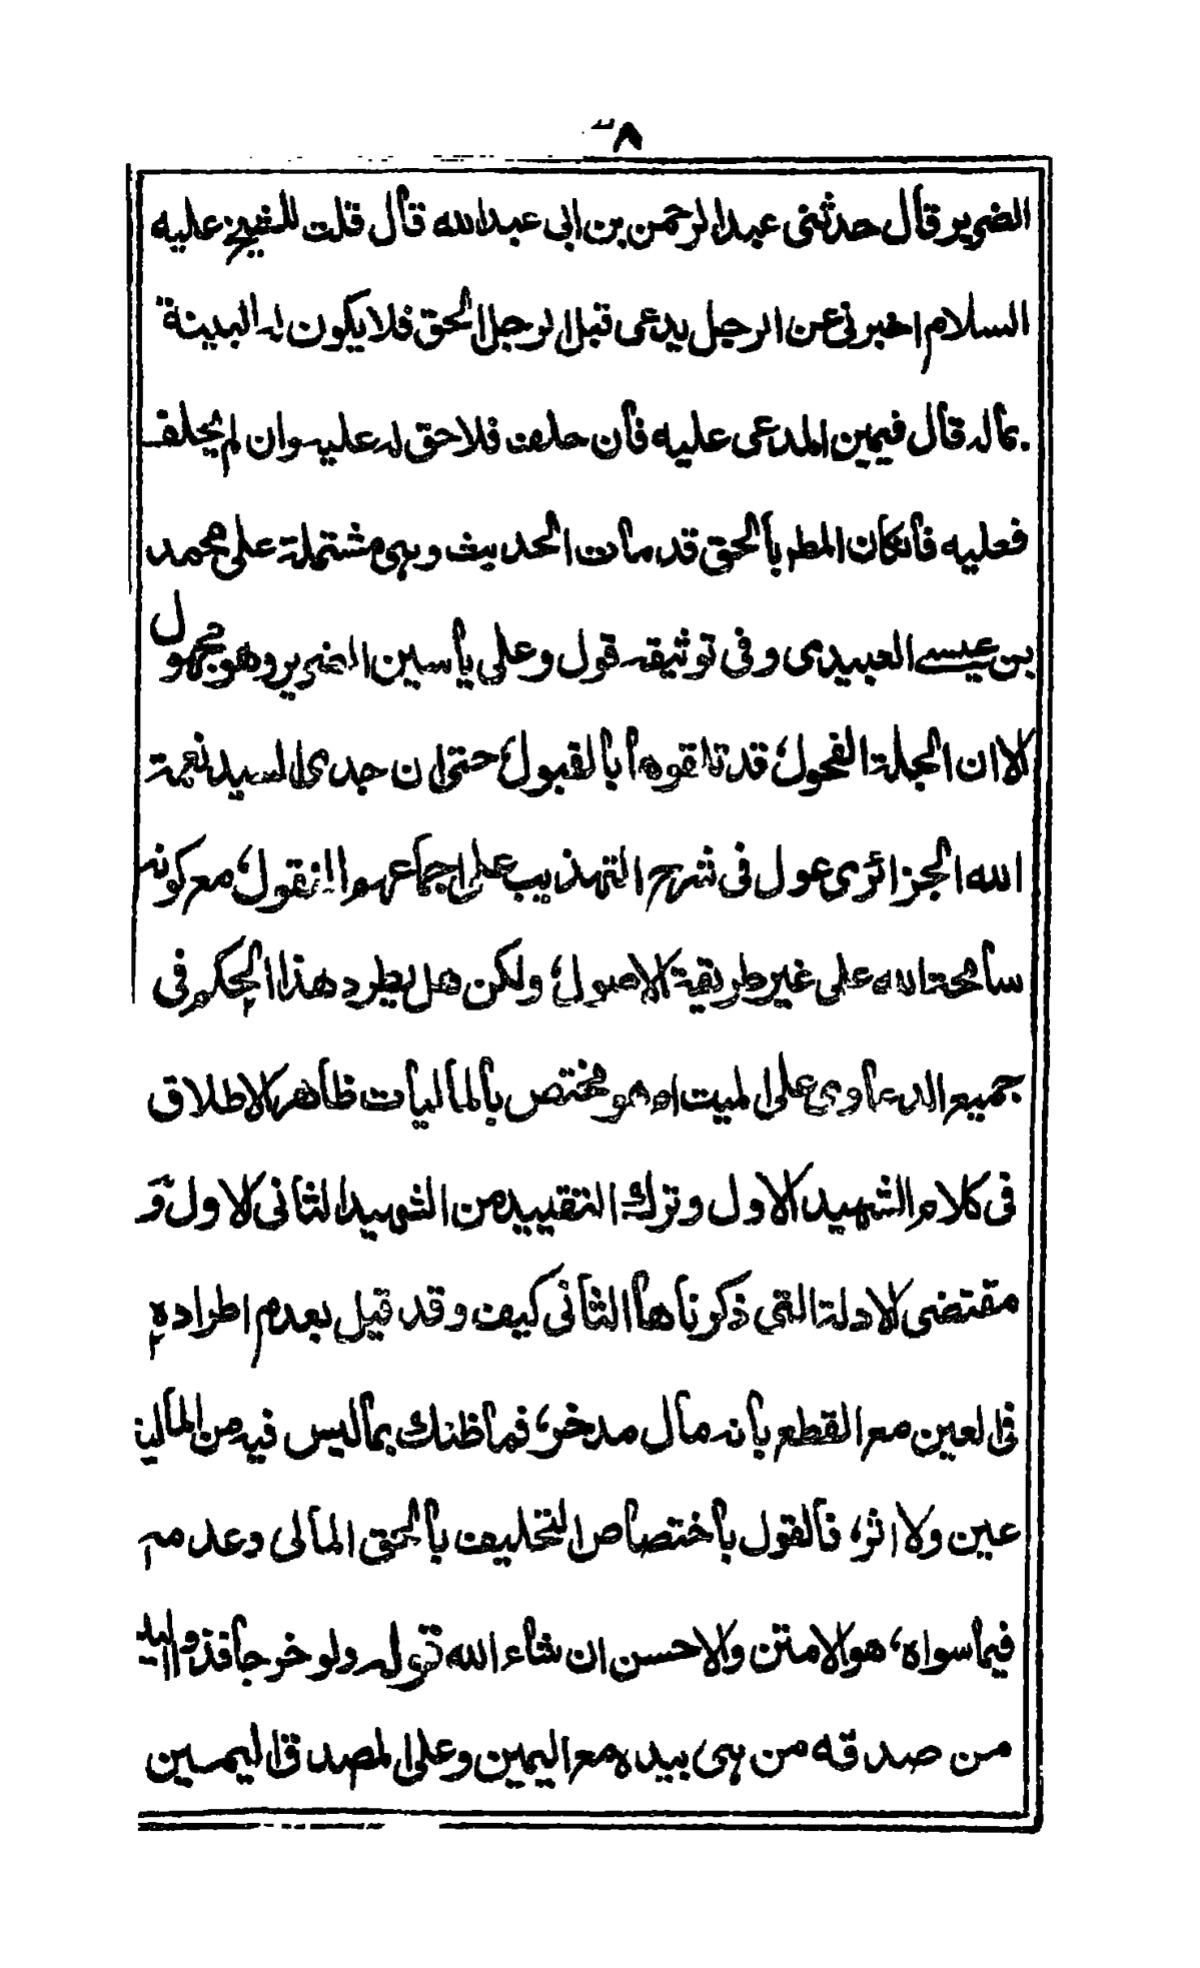 ٨
الضرير قال حدثنى عبد الرحمن بن ابى عبد الله قال قلت للشيخ عليه
السلام اخبرنى عن الرجل يدعى قبل الرجل الحق فلا يكون له البينة
بماله قال فيمين المدعى عليه فان حلف فلا حق له عليه وان لم يحلف
فعليه فانكان المط بالحق قد مات الحديث وهى مشتملة على محمد
بن عيسى العبيدى وفى توثيقه قول وعلى ياسين الضرير وهو مجهول
الا ان الجلة الفحول، قد تلقوها بالقبول، حتى ان جدى السيد نعمة
الله الجزائرى عول فى شرح التهذيب على اجماعهم المنقول، مع كونه
سامحه الله على غير طريقة الاصول، ولكن هل يطرد هذا الحكم فى
جميع الدعاوى على الميت او هو مختص بالماليات ظاهر الاطلاق
فى كلام الشهيد الاول وترك التقييد من الشهيد الثانى الاول و
مقتضى الادلة التى ذكرناها الثانى كيف وقد قيل بعدم اطراده
فى العين مع القطع بانه مال مدخر، فما ظنك بما ليس فيه من المالية
عين ولا اثر، فالقول باختصاص التحليف بالحق المالى وعدمه
فيما سواه، هو الامتن والاحسن ان شاء الله قوله ولو خرجا فذو اليد
من صدقه من هى بيده مع اليمين وعلى المصدق اليمين